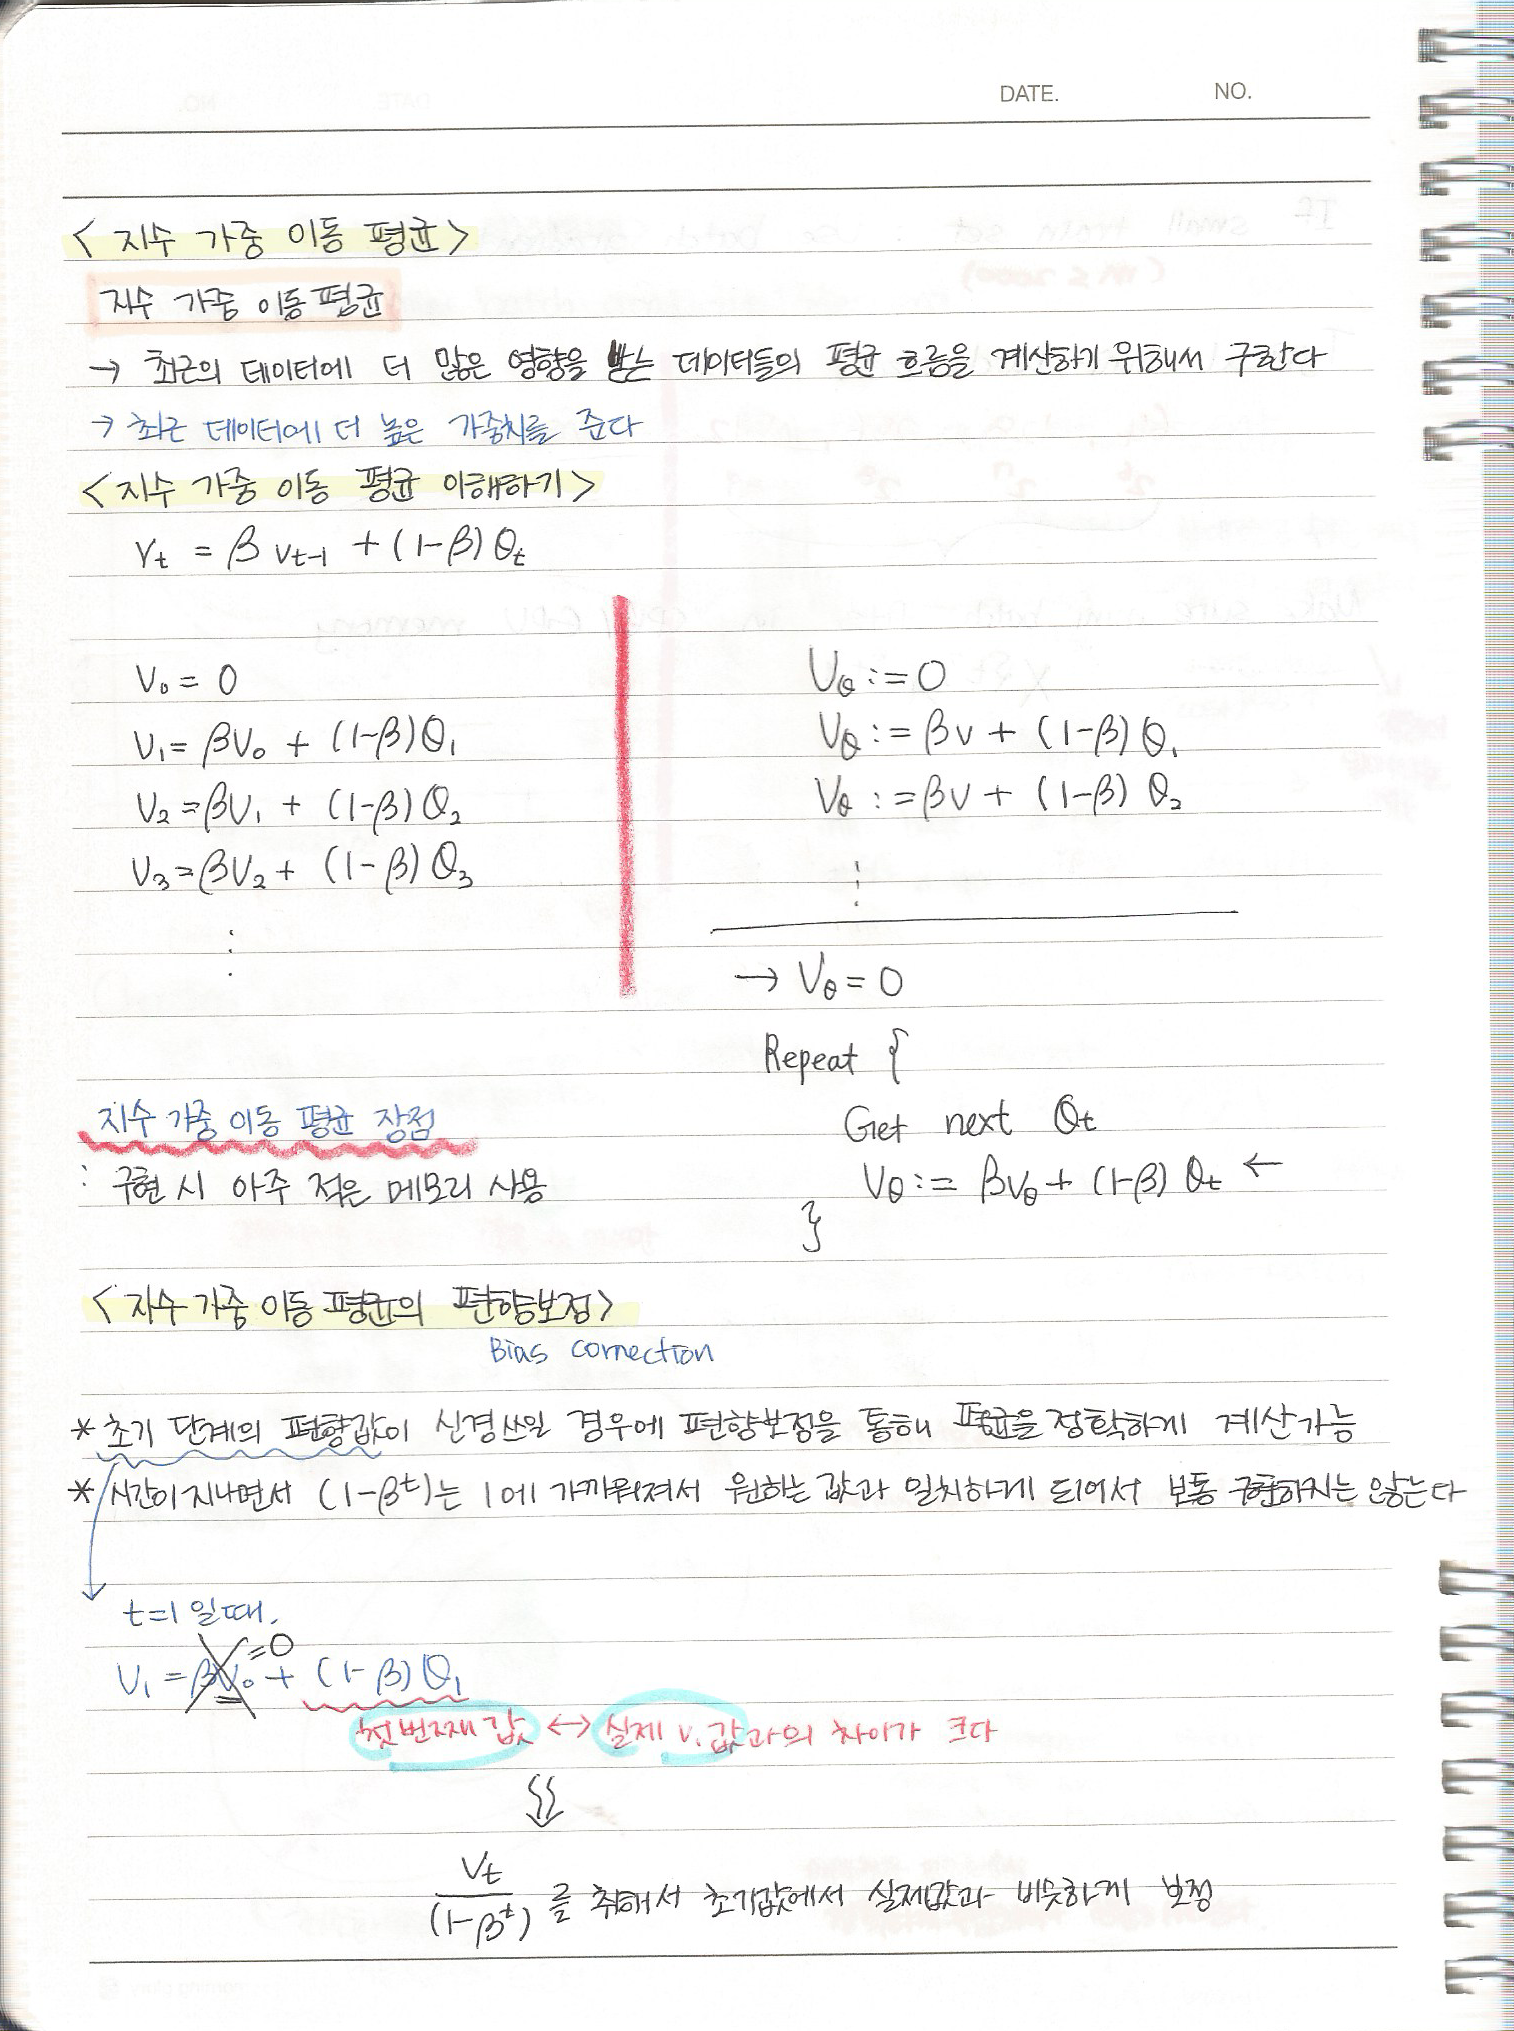 DATE. NO.
< 지수 가중 이동 평균 >
지수 가중 이동 평균
→ 최근의 데이터에 더 많은 영향을 받는 데이터들의 평균 흐름을 계산하기 위해서 구한다
→ 최근 데이터에 더 높은 가중치를 준다
< 지수 가중 이동 평균 이해하기 >
Vt = β Vt-1 + (1-β) θt
V0 = 0
V1 = βV0 + (1-β)θ1
V2 = βV1 + (1-β)θ2
V3 = βV2 + (1-β)θ3
⋮
Vθ := 0
Vθ := βv + (1-β) θ1
Vθ := βv + (1-β) θ2
⋮
→ Vθ = 0
Repeat {
Get next θt
Vθ := βVθ + (1-β) θt ←
}
지수 가중 이동 평균 장점
: 구현 시 아주 적은 메모리 사용
< 지수 가중 이동 평균의 편향보정 >
Bias correction
* 초기 단계의 편향값이 신경쓰일 경우에 편향보정을 통해 평균을 정확하게 계산가능
* 시간이 지나면서 (1-β^t)는 1에 가까워져서 원하는 값과 일치하게 되어서 보통 구현하지는 않는다
t=1 일때.
V1 = βV0 + (1-β)θ1
=0
첫번째 값 ↔ 실제 V1 값과의 차이가 크다
Vt / (1-β^t) 를 취해서 초기값에서 실제값과 비슷하게 보정